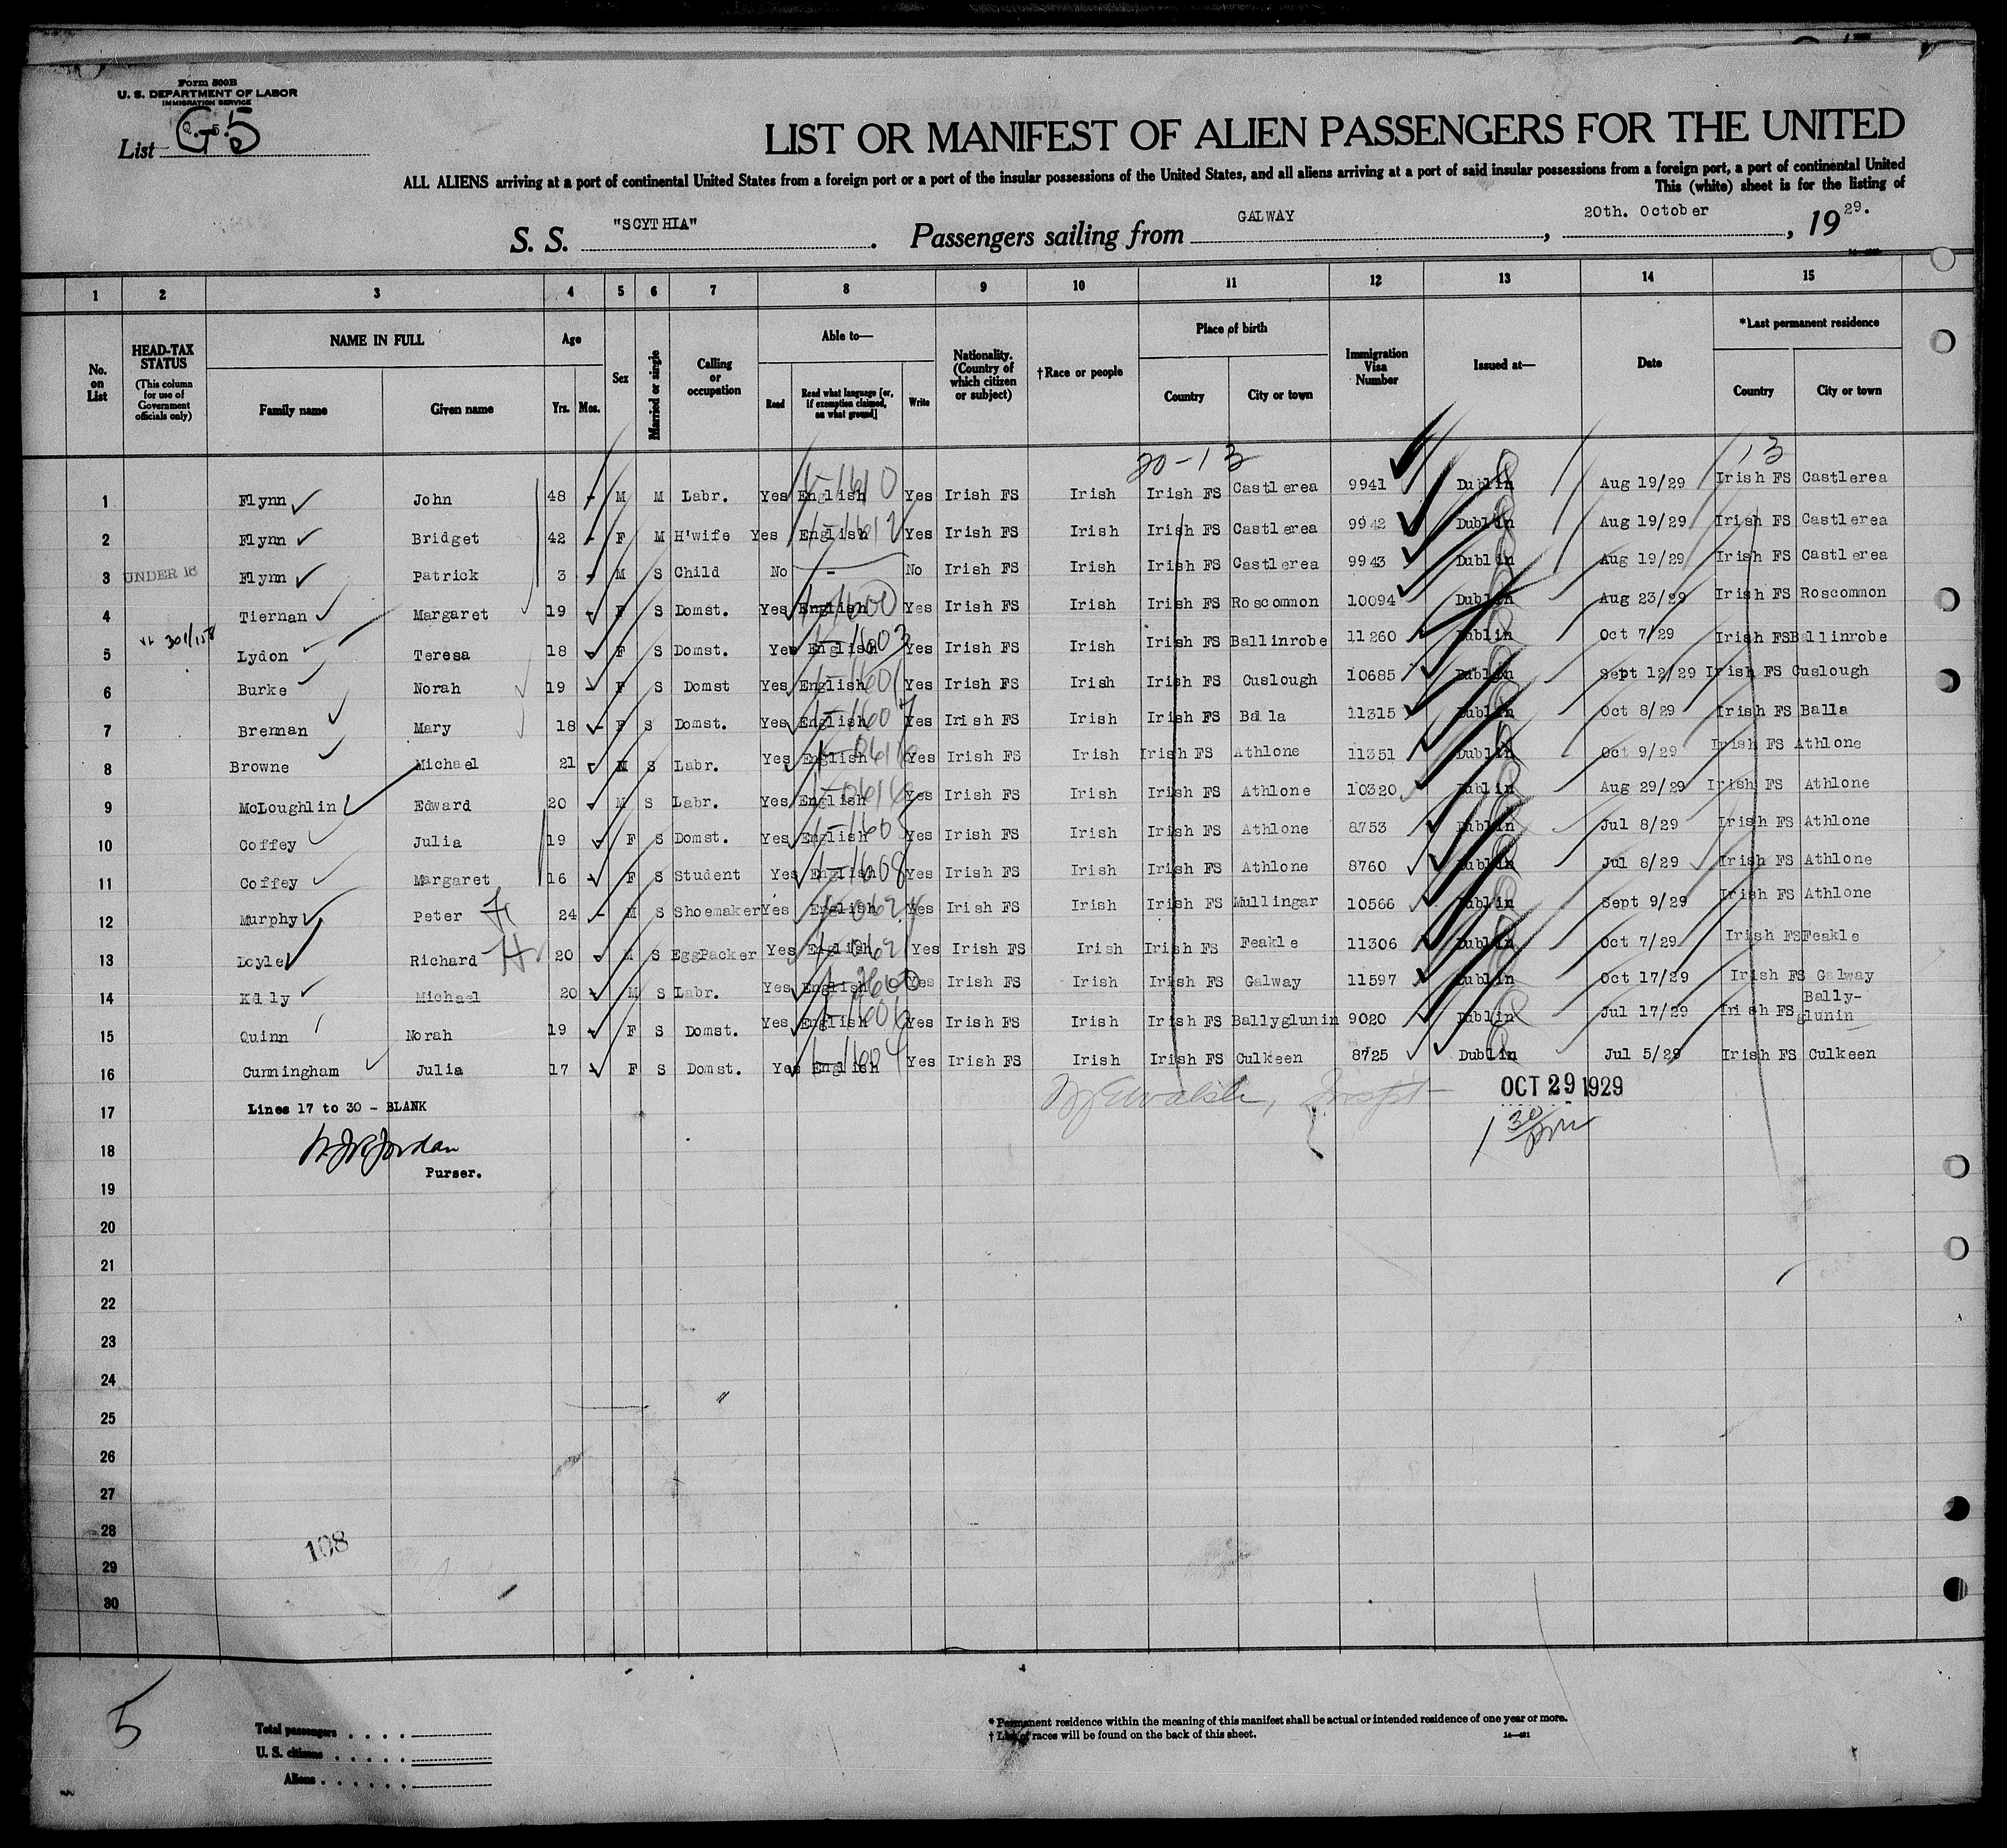 Form 500B
U. S. DEPARTMENT OF LABOR
IMMIGRATION SERVICE
List G-5
LIST OR MANIFEST OF ALIEN PASSENGERS FOR THE UNITED
ALL ALIENS arriving at a port of continental United States from a foreign port or a port of the insular possessions of the United States, and all aliens arriving at a port of said insular possessions from a foreign port, a port of continental United
This (white) sheet is for the listing of
S. S. "SCYTHIA". Passengers sailing from GALWAY, 20th. October, 1929.
1 2 3 4 5 6 7 8 9 10 11 12 13 14 15
No. on List
HEAD-TAX STATUS (This column for use of Government officials only)
NAME IN FULL Family name Given name
Age Yrs. Mos.
Sex
Married or single
Calling or occupation
Able to— Read Read what language [or, if exemption claimed, on what ground] Write
Nationality. (Country of which citizen or subject)
†Race or people
Place of birth Country City or town
Immigration Visa Number
Issued at—
Date
*Last permanent residence Country City or town
20-13 13
1 Flynn John 48 - M M Labr. Yes English Yes Irish FS Irish Irish FS Castlerea 9941 Dublin Aug 19/29 Irish FS Castlerea
2 Flynn Bridget 42 - F M H'wife Yes English Yes Irish FS Irish Irish FS Castlerea 9942 Dublin Aug 19/29 Irish FS Castlerea
3 UNDER 16 Flynn Patrick 3 - M S Child No - No Irish FS Irish Irish FS Castlerea 9943 Dublin Aug 19/29 Irish FS Castlerea
4 Tiernan Margaret 19 - F S Domst. Yes English Yes Irish FS Irish Irish FS Roscommon 10094 Dublin Aug 23/29 Irish FS Roscommon
5 301/158 Lydon Teresa 18 F S Domst. Yes English Yes Irish FS Irish Irish FS Ballinrobe 11260 Dublin Oct 7/29 Irish FS Ballinrobe
6 Burke Norah 19 - F S Domst Yes English Yes Irish FS Irish Irish FS Cuslough 10685 Dublin Sept 12/29 Irish FS Cuslough
7 Brennan Mary 18 - F S Domst. Yes English Yes Irish FS Irish Irish FS Balla 11315 Dublin Oct 8/29 Irish FS Balla
8 Browne Michael 21 - M S Labr. Yes English Yes Irish FS Irish Irish FS Athlone 11351 Dublin Oct 9/29 Irish FS Athlone
9 McLoughlin Edward 20 - M S Labr. Yes English Yes Irish FS Irish Irish FS Athlone 10320 Dublin Aug 29/29 Irish FS Athlone
10 Coffey Julia 19 - F S Domst. Yes English Yes Irish FS Irish Irish FS Athlone 8753 Dublin Jul 8/29 Irish FS Athlone
11 Coffey Margaret 16 - F S Student Yes English Yes Irish FS Irish Irish FS Athlone 8760 Dublin Jul 8/29 Irish FS Athlone
12 Murphy Peter 24 - M S Shoemaker Yes English Yes Irish FS Irish Irish FS Mullingar 10566 Dublin Sept 9/29 Irish FS Athlone
13 Doyle Richard 20 - M S EggPacker Yes English Yes Irish FS Irish Irish FS Feakle 11306 Dublin Oct 7/29 Irish FS Feakle
14 Kelly Michael 20 - M S Labr. Yes English Yes Irish FS Irish Irish FS Galway 11597 Dublin Oct 17/29 Irish FS Galway
15 Quinn Norah 19 - F S Domst. Yes English Yes Irish FS Irish Irish FS Ballyglunin 9020 Dublin Jul 17/29 Irish FS Bally-glunin
16 Cunningham Julia 17 - F S Domst. Yes English Yes Irish FS Irish Irish FS Culkeen 8725 Dublin Jul 5/29 Irish FS Culkeen
17 Lines 17 to 30 - BLANK Walsh, Inspt OCT 29 1929
1 30 pm
18 Jordan
Purser.
19
20
21
22
23
24
25
26
27
28
108
29
30
5
Total passengers
U. S. citizens
Aliens
* Permanent residence within the meaning of this manifest shall be actual or intended residence of one year or more.
† List of races will be found on the back of this sheet.